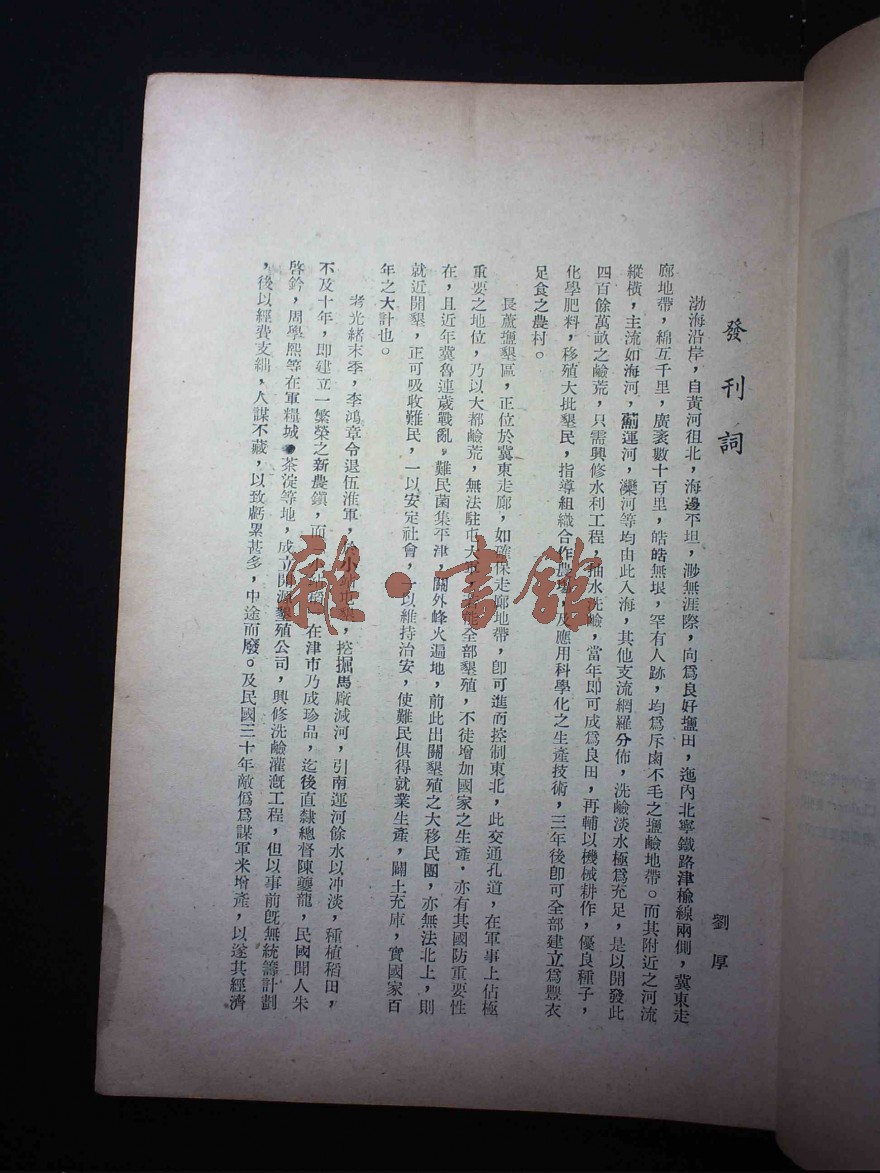 發刊詞
劉厚
渤海沿岸，自黃河徂北，海邊平坦，渺無涯際，向爲良好鹽田，迤內北寧鐵路津楡線兩側，冀東走
廊地帶，綿亙千里，廣袤數十百里，皓皓無垠，罕有人跡，均爲斥鹵不毛之鹽鹼地帶。而其附近之河流
縱橫，主流如海河，薊運河，灤河等均由此入海，其他支流網羅分佈，洗鹼淡水極爲充足，是以開發此
四百餘萬畝之鹼荒，只需興修水利工程，抽水洗鹼，當年即可成爲良田，再輔以機械耕作，優良種子，
化學肥料，移殖大批墾民，指導組織合作農墾，及應用科學化之生產技術，三年後卽可全部建立爲豐衣
足食之農村。
長蘆鹽墾區，正位於冀東走廊，如確保走廊地帶，卽可進而控制東北，此交通孔道，在軍事上佔極
重要之地位，乃以大都鹼荒，無法駐屯大，能全部墾殖，不徒增加國家之生產，亦有其國防重要性
在，且近年冀魯連歲戰亂，難民菌集平津，關外峰火遍地，前此出關墾殖之大移民團，亦無法北上，則
就近開墾，正可吸收難民，一以安定社會，一以維持治安，使難民俱得就業生產，闢土充庫，實國家百
年之大計也。
考光緒末季，李鴻章令退伍淮軍，小站，挖掘馬廠減河，引南運河餘水以冲淡，種植稻田，
不及十年，即建立一繁榮之新農鎭，而站稻在津市乃成珍品，迄後直隸總督陳夔龍，民國聞人朱
啓鈐，周學熙等在軍糧城●茶淀等地，成立開源墾殖公司，興修洗鹼灌漑工程，但以事前旣無統籌計劃
，後以經費支絀，人謀不藏，以致虧累甚多，中途而廢。及民國三十年敵僞爲謀軍米增產，以遂其經濟
雜·書館